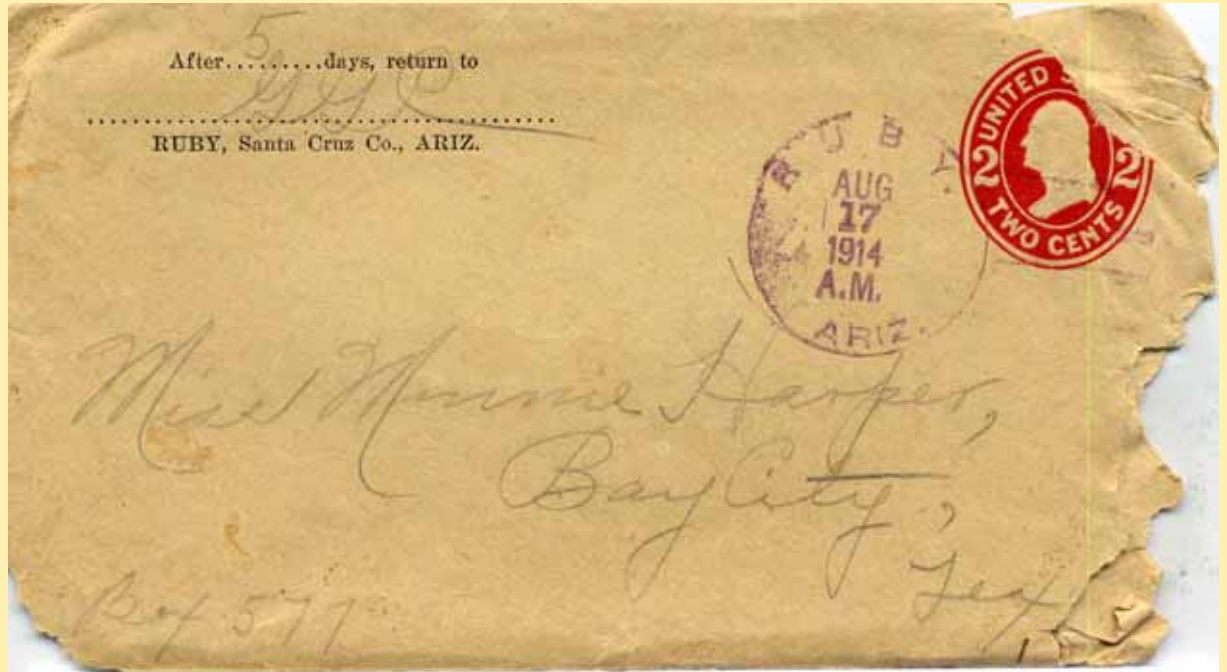 5
After.........days, return to
G G C
RUBY, Santa Cruz Co., ARIZ.
RUBY.
AUG
17
1914
A.M.
ARIZ.
UNITED S
2 2
TWO CENTS
Miss Minnie Harper,
Bay City,
Tex
Box 577